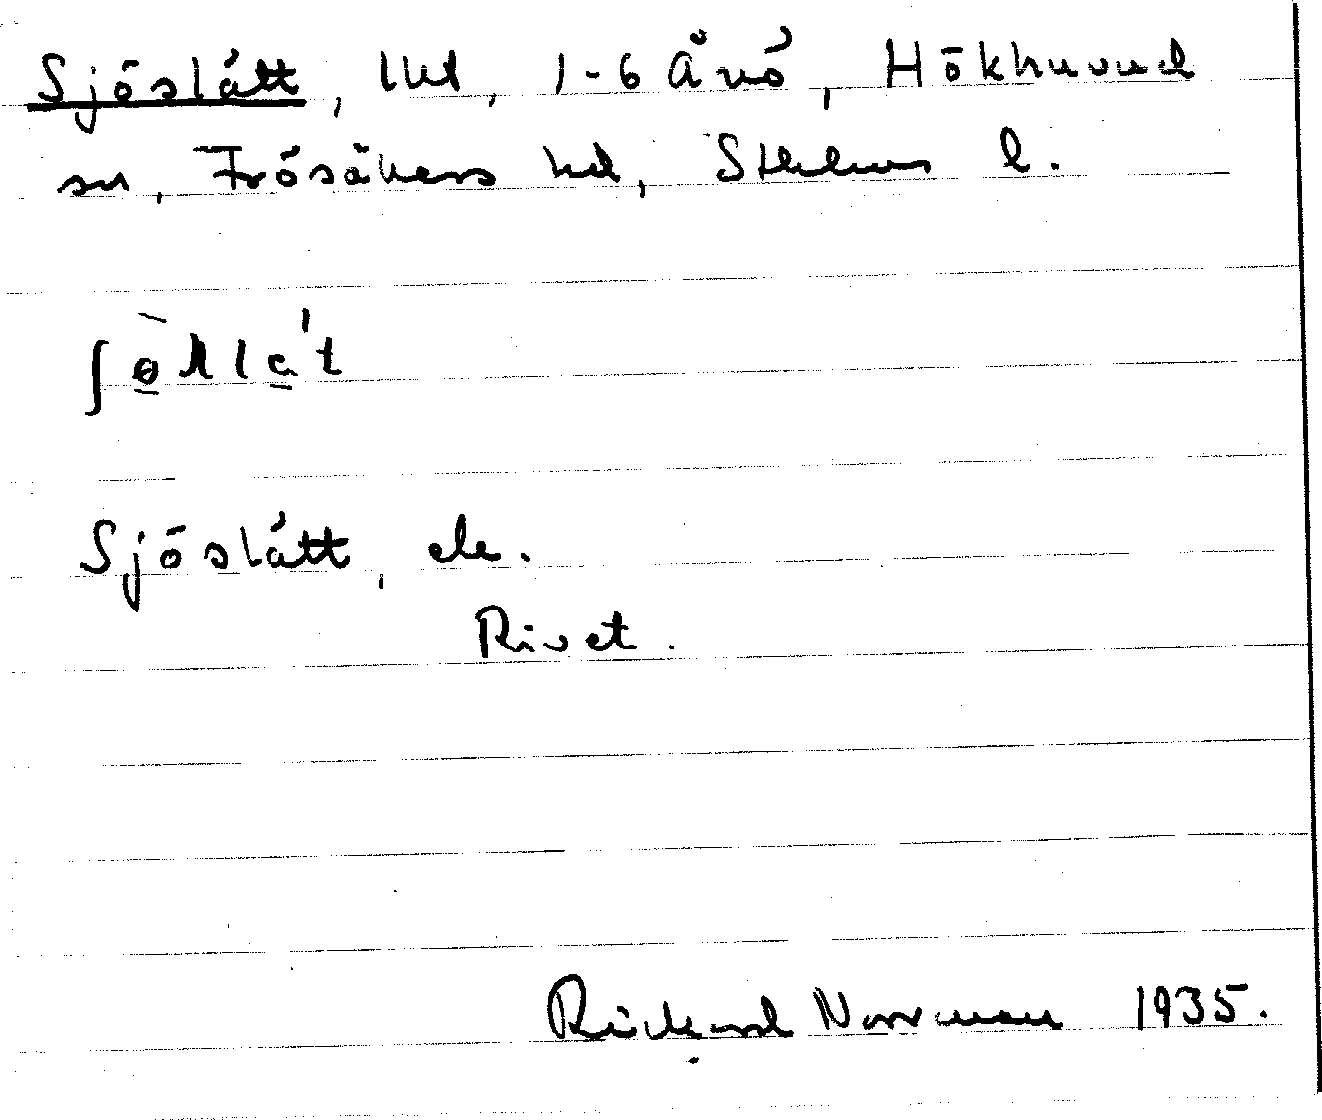 Sjöslätt, lht, 1-6 Ånö, Hökhuvud
sn, Frösåkers hd, Sthlms l.
Sjöslätt, ele.
Rivet.
Rickard Norrman 1935.